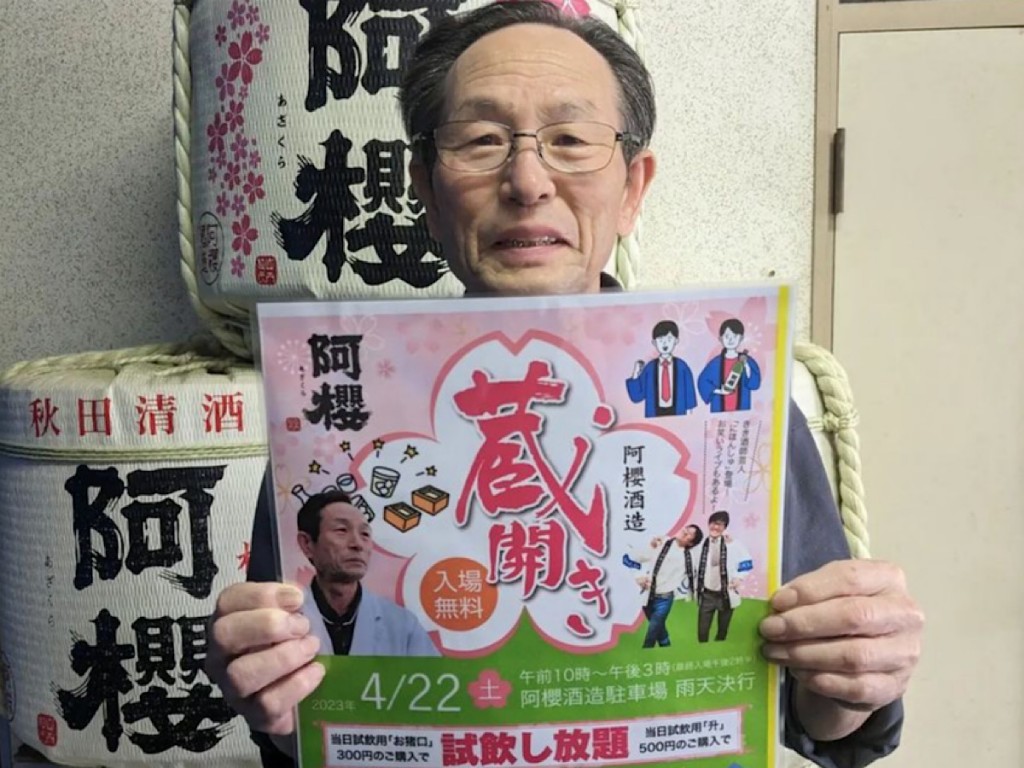 阿櫻
あざくら
秋田清酒
阿櫻
あざくら
阿櫻
あざくら
蔵開き
阿櫻酒造
きき酒師芸人
「にほんしゅ」登場!
お笑いライブもあるよ!
入場
無料
2023年 4/22 土
午前10時〜午後3時(最終入場午後2時)
阿櫻酒造駐車場 雨天決行
当日試飲用「お猪口」
300円のご購入で
試飲し放題
当日試飲用「升」
500円のご購入で